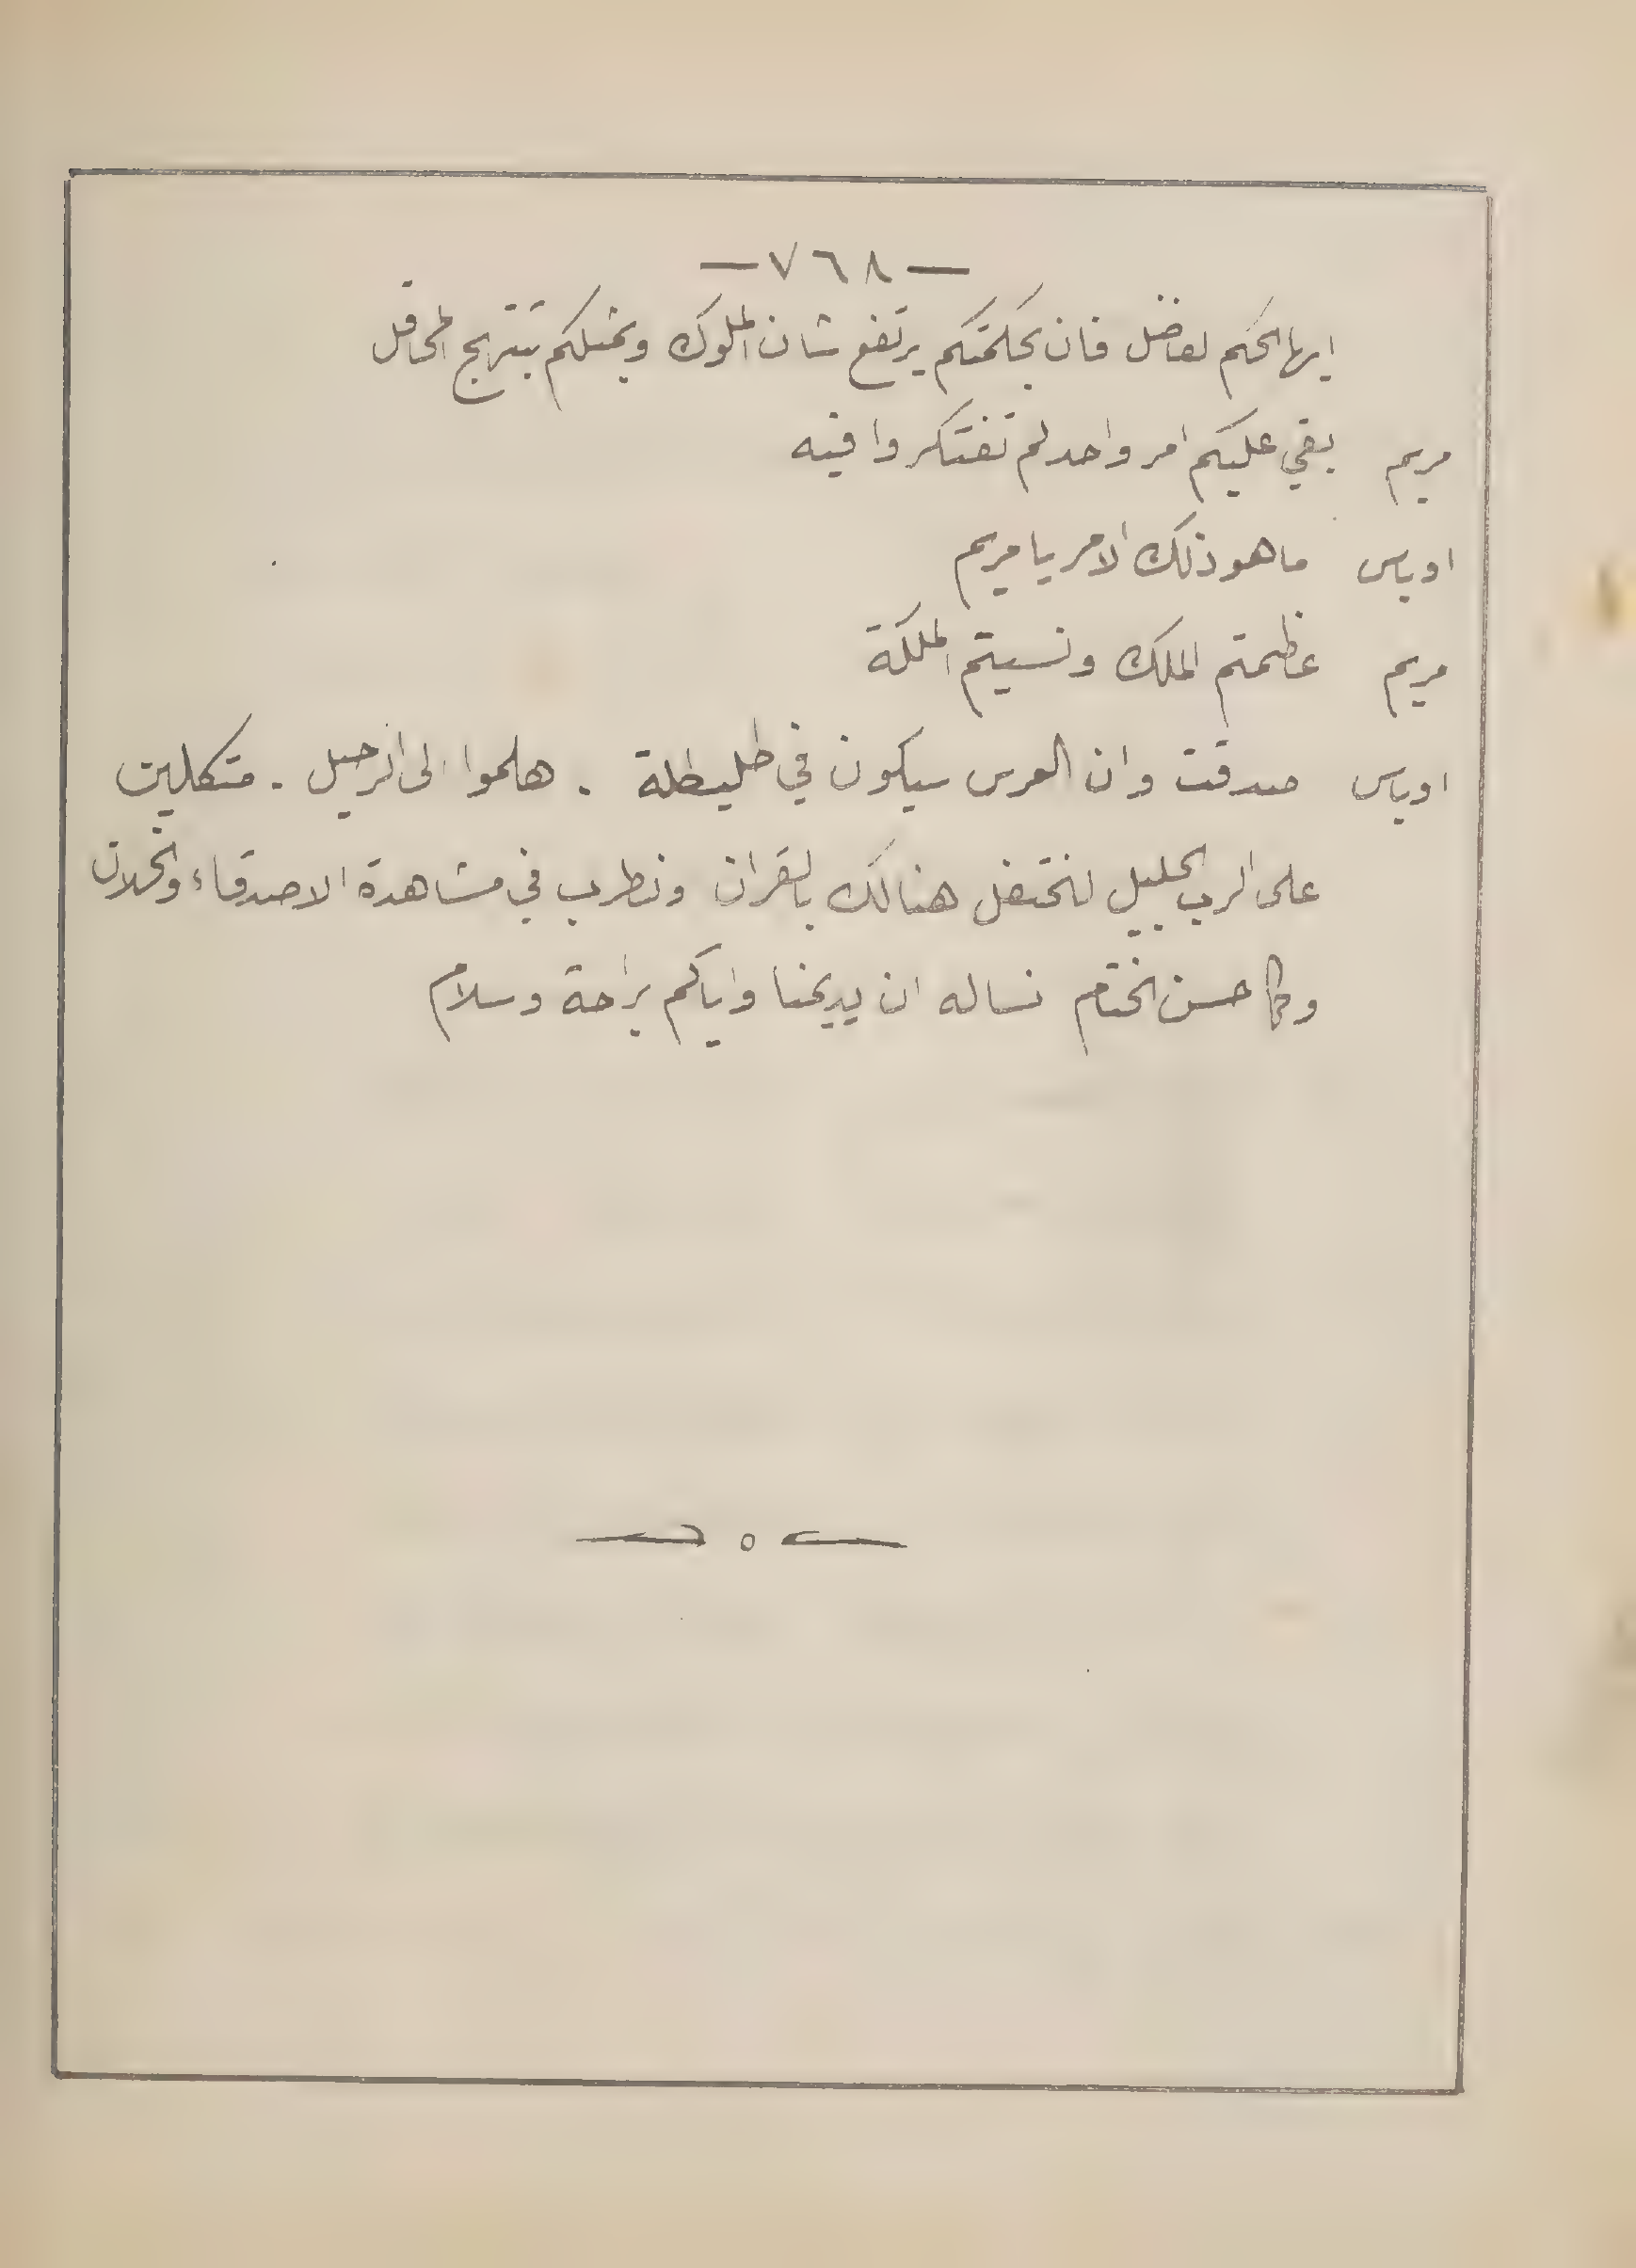 — ٧٦٨ —
ايها الحكم الفاضل فان بحكمتكم يرتفع شان الملوك وبمثلكم تبتهج المحافل
مريم بقي عليكم امر واحد لم تفتكروا فيه
اوباس ما هو ذلك الامر يا مريم
مريم عظمتم الملك ونسيتم الملكة
اوباس صدقت وان العرس سيكون في طليطلة . هلموا الى الرحيل . متكلين
على الرب الجليل لنحتفل هنالك بالقران ونطرب في مشاهدة الاصدقاء والخلان
وكما حسن الختام نساله ان يديمنا واياكم براحة وسلام